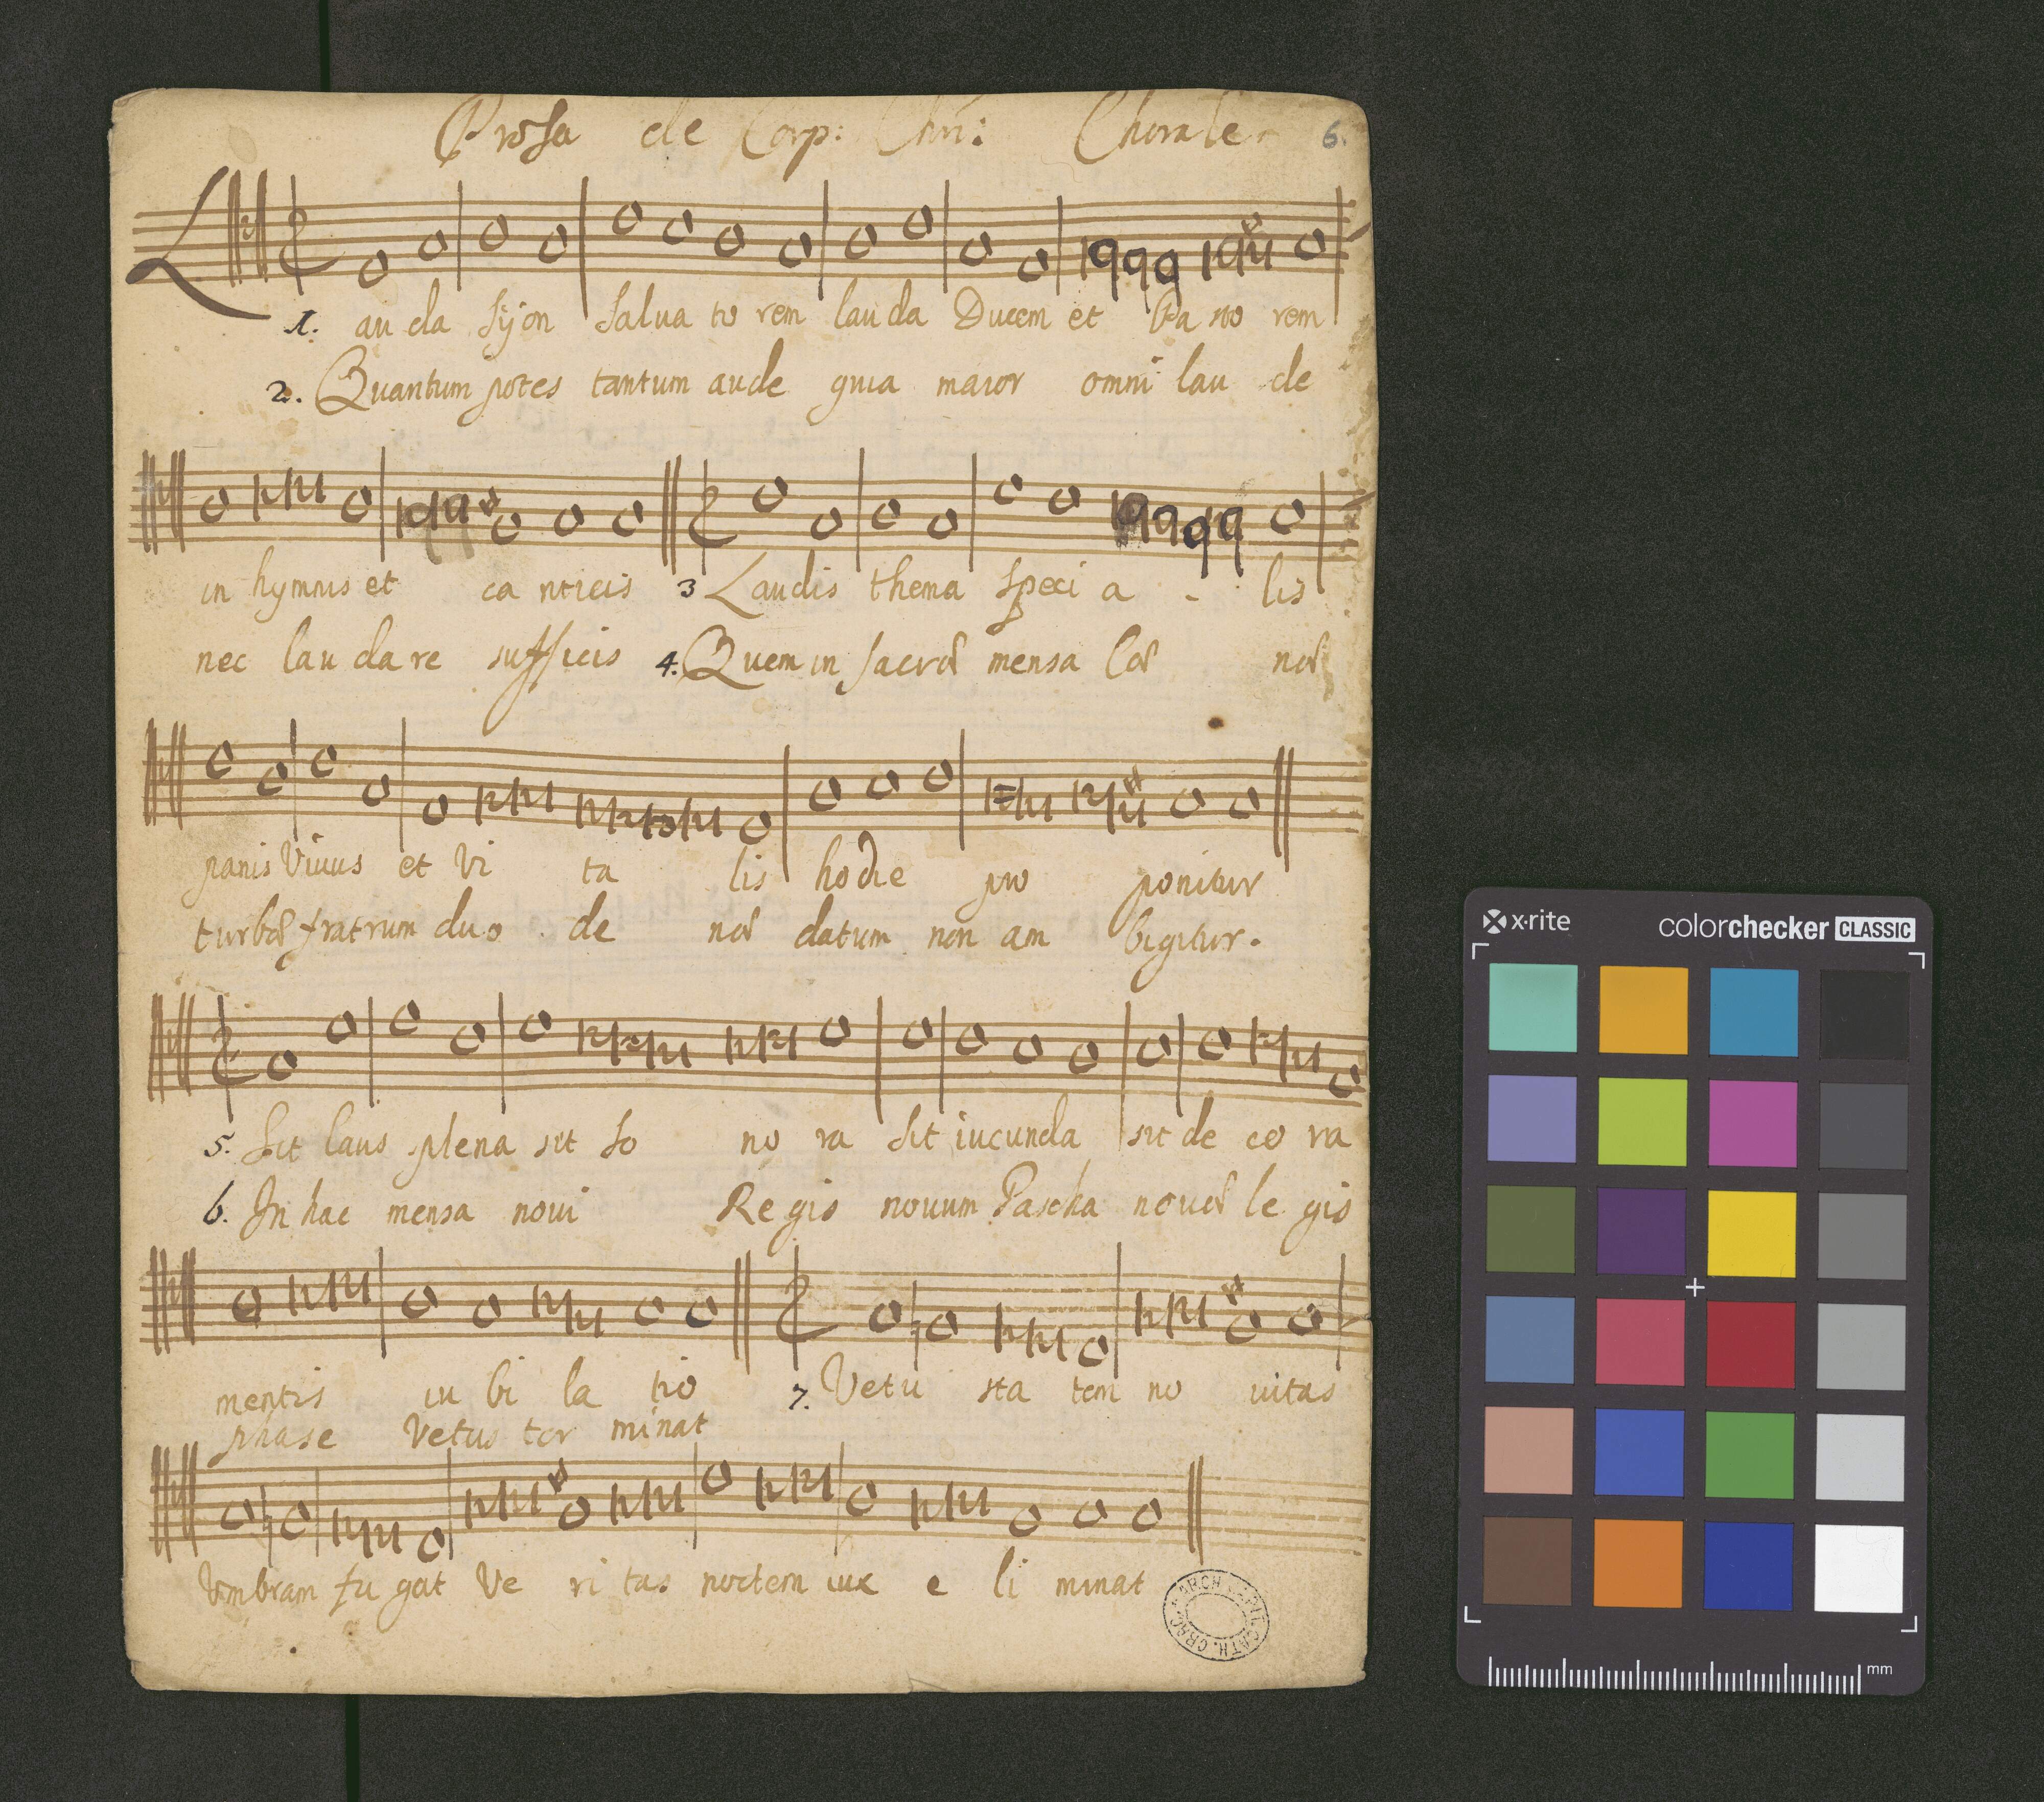 Prosa de Corp: Chri: Chorale 6.
L
1. auda syon saluatorem lauda Ducem et Pastorem
2. Quantum potes tantum aude quia maior omni laude
in hymnis et canticis 3 Laudis thema speci a - lis
nec laudare sufficis 4. Quem in sacrae mensa Cae nae
panis Viuus et Vi ta lis hodie pro ponitur
turbae fratrum duo de nae datum non am bigitur.
5. Sit laus plena sit so no ra sit iucunda sit de co ra
6. In hac mensa noui Regis nouum Pascha nouae le gis
mentis iu bi la tio 7. Vetu sta tem no uitas
phase Vetus ter minat
Vmbram fu gat Ve ri tas noctem lux e li minat
ARCH. CAPIT. CATH. CRAC.
x-rite colorchecker CLASSIC
mm